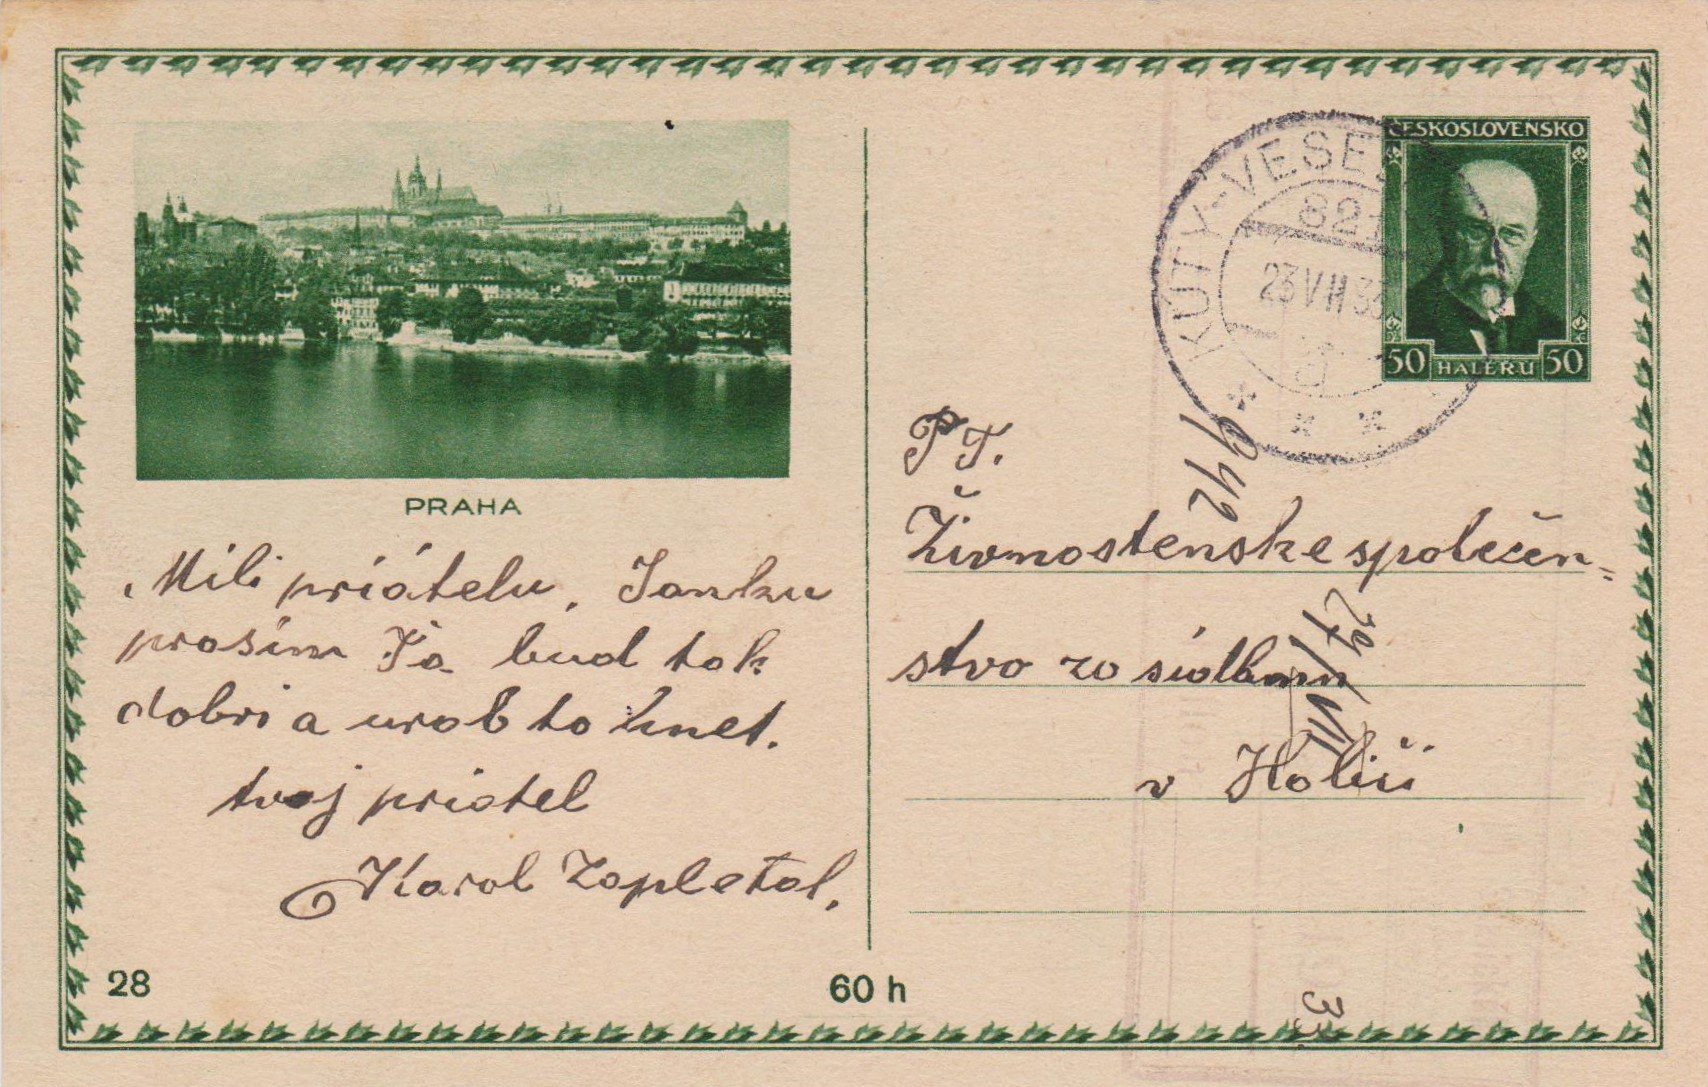 PRAHA
Mili priátelu, Janku
prosím Ťa bud tak
dobri a urob to hnet.
tvoj priatel
Karol Zapletal.
28
60 h
ČESKOSLOVENSKO
50 HALERU 50
KÚTY-VESE
821
23 VII 3
P T.
Živnostenske spolećen=
stvo zo sídlom
v Holiči
942
29/VII